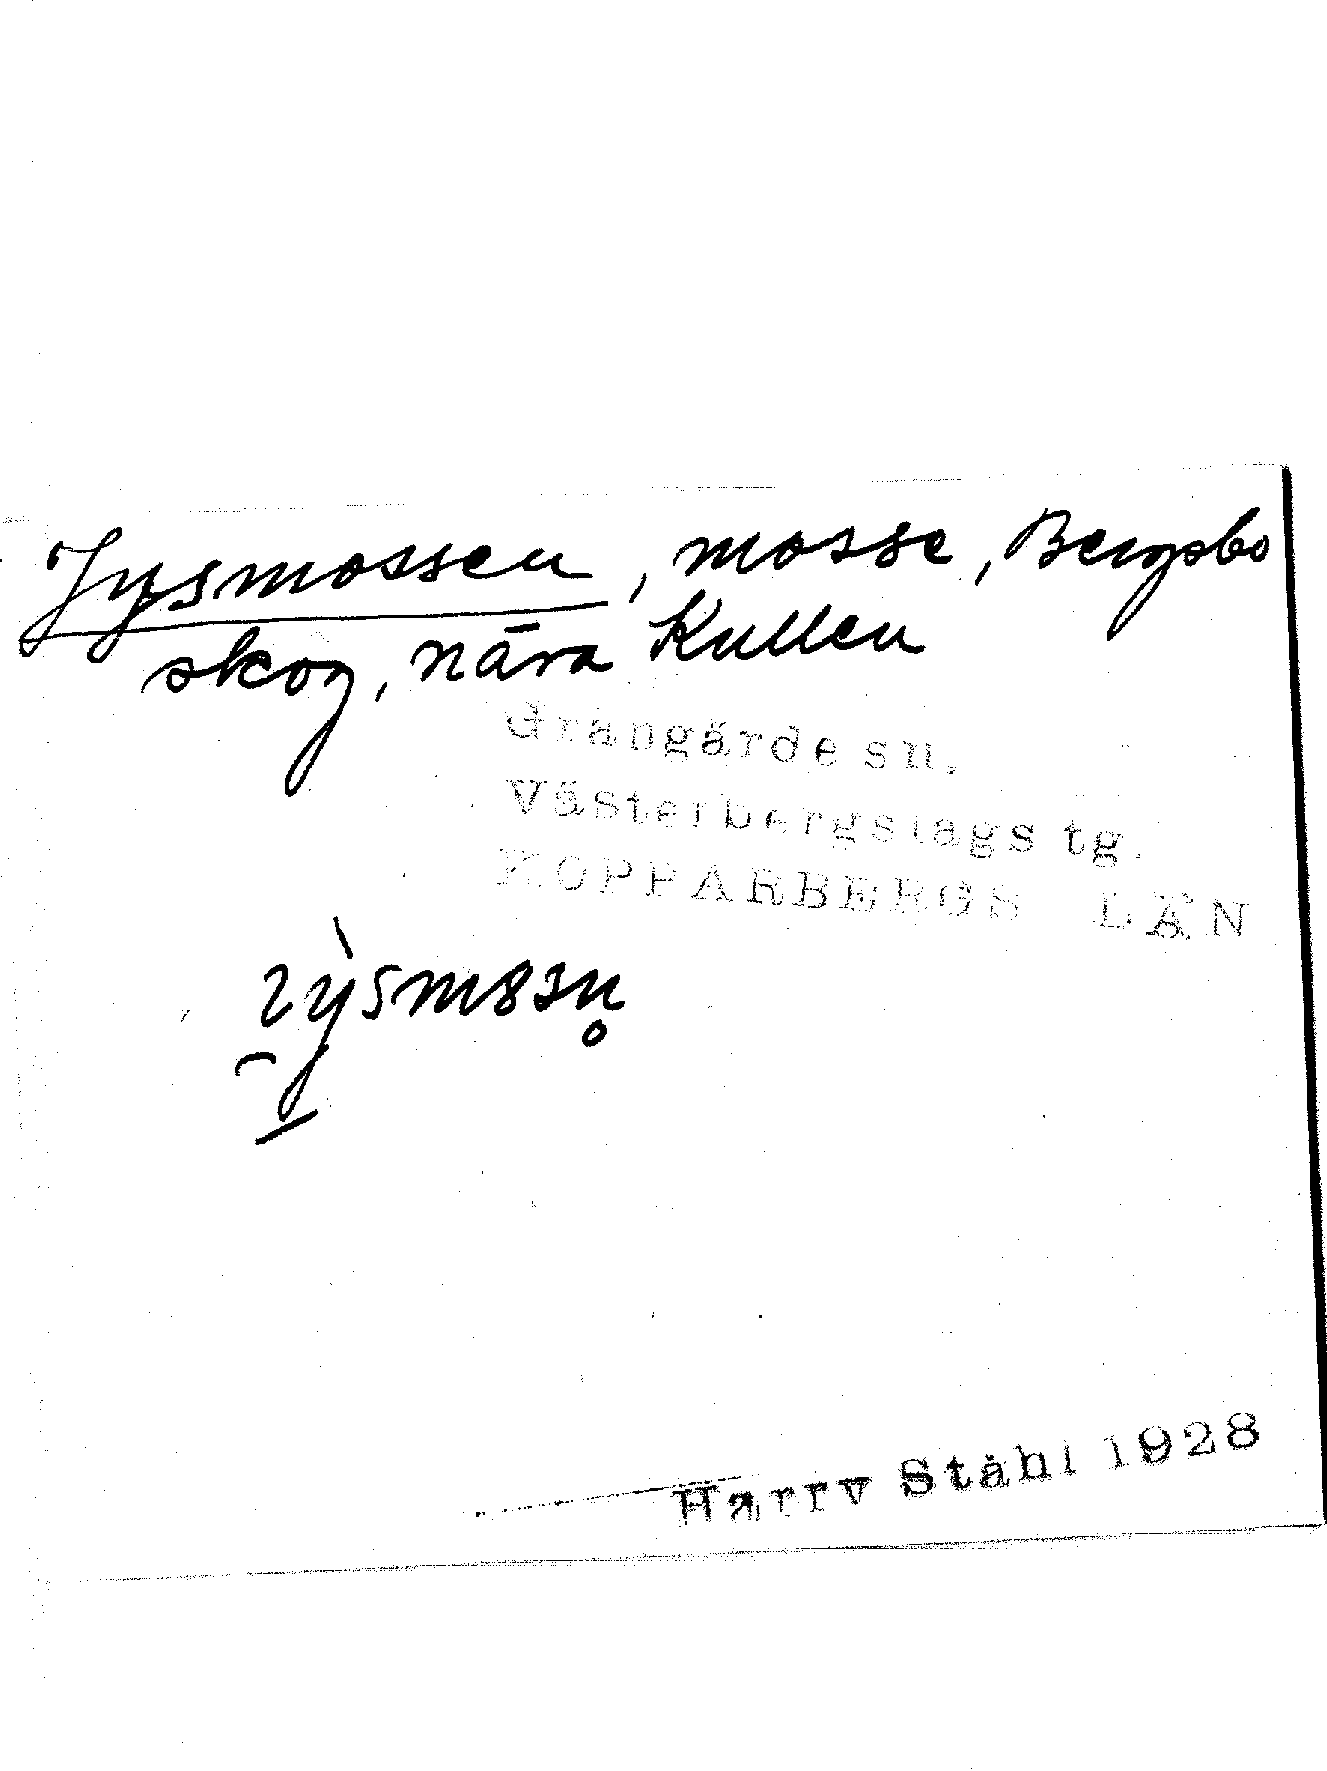 Jysmossen, mosse, Bergsbo
skog, nära Kullen
Grangärde sn.
Västerbergslags tg.
KOPPARBERGS LÄN
Harry Ståhl 1928